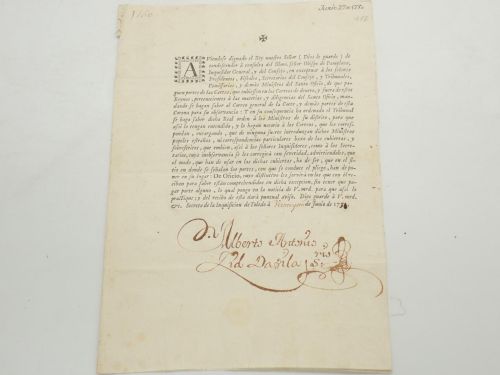 Aviendose dignado el Rey nuestro Señor (Dios le guarde) de
condescender à consulta del Illmo. señor Obispo de Pamplona,
Inquisidor General, y del Consejo, en exceptuar à los señores
Presidentes, Fiscales, Secretarios del Consejo, y Tribunales,
Comissarios, y demàs Ministros del Santo Oficio, de que
paguen portes de las Cartas, que
Reynos, pertenecientes à las materias, y diligencias del Santo Oficio, man-
dando se hagan saber al Correo general de la Corte, y demàs partes de esta
Corona para su observancia: Y en su consequencia ha ordenado el Tribunal
se haga saber dicha Real orden à los Ministros de su distrito, para que
assi lo tengan entendido, y lo hagan notorio à los Correos, que les corres-
pondan, encargando, que de ninguna suerte introduzgan dichos Ministros
papeles estraños, ni correspondencias particulares baxo de las cubiertas, y
sobrescritos, que embien, assi à los señores Inquisidores, como à los Secre-
tarios, cuya inobservancia se les corregirà con severidad, advirtiendoles, que
el modo, que han de usar en las dichas cubiertas, ha de ser, que en el si-
tio en donde se señalan los portes, con que se conduce el pliego, han de po-
ner en su lugar: De Oficio, cuyo distintivo les servirà en las que re-
ciban para saber estàn comprehendidos en dicha excepcion, sin tener que pagar
porte alguno, lo qual pongo en la noticia de V. mrd. para que assi lo
practique; y del recibo de esta darà puntual aviso. Dios guarde à V. mrd.
&c. Secreto de la Inquisicion de Toledo à de Junio de
Dn. Alberto Antonio
Davila